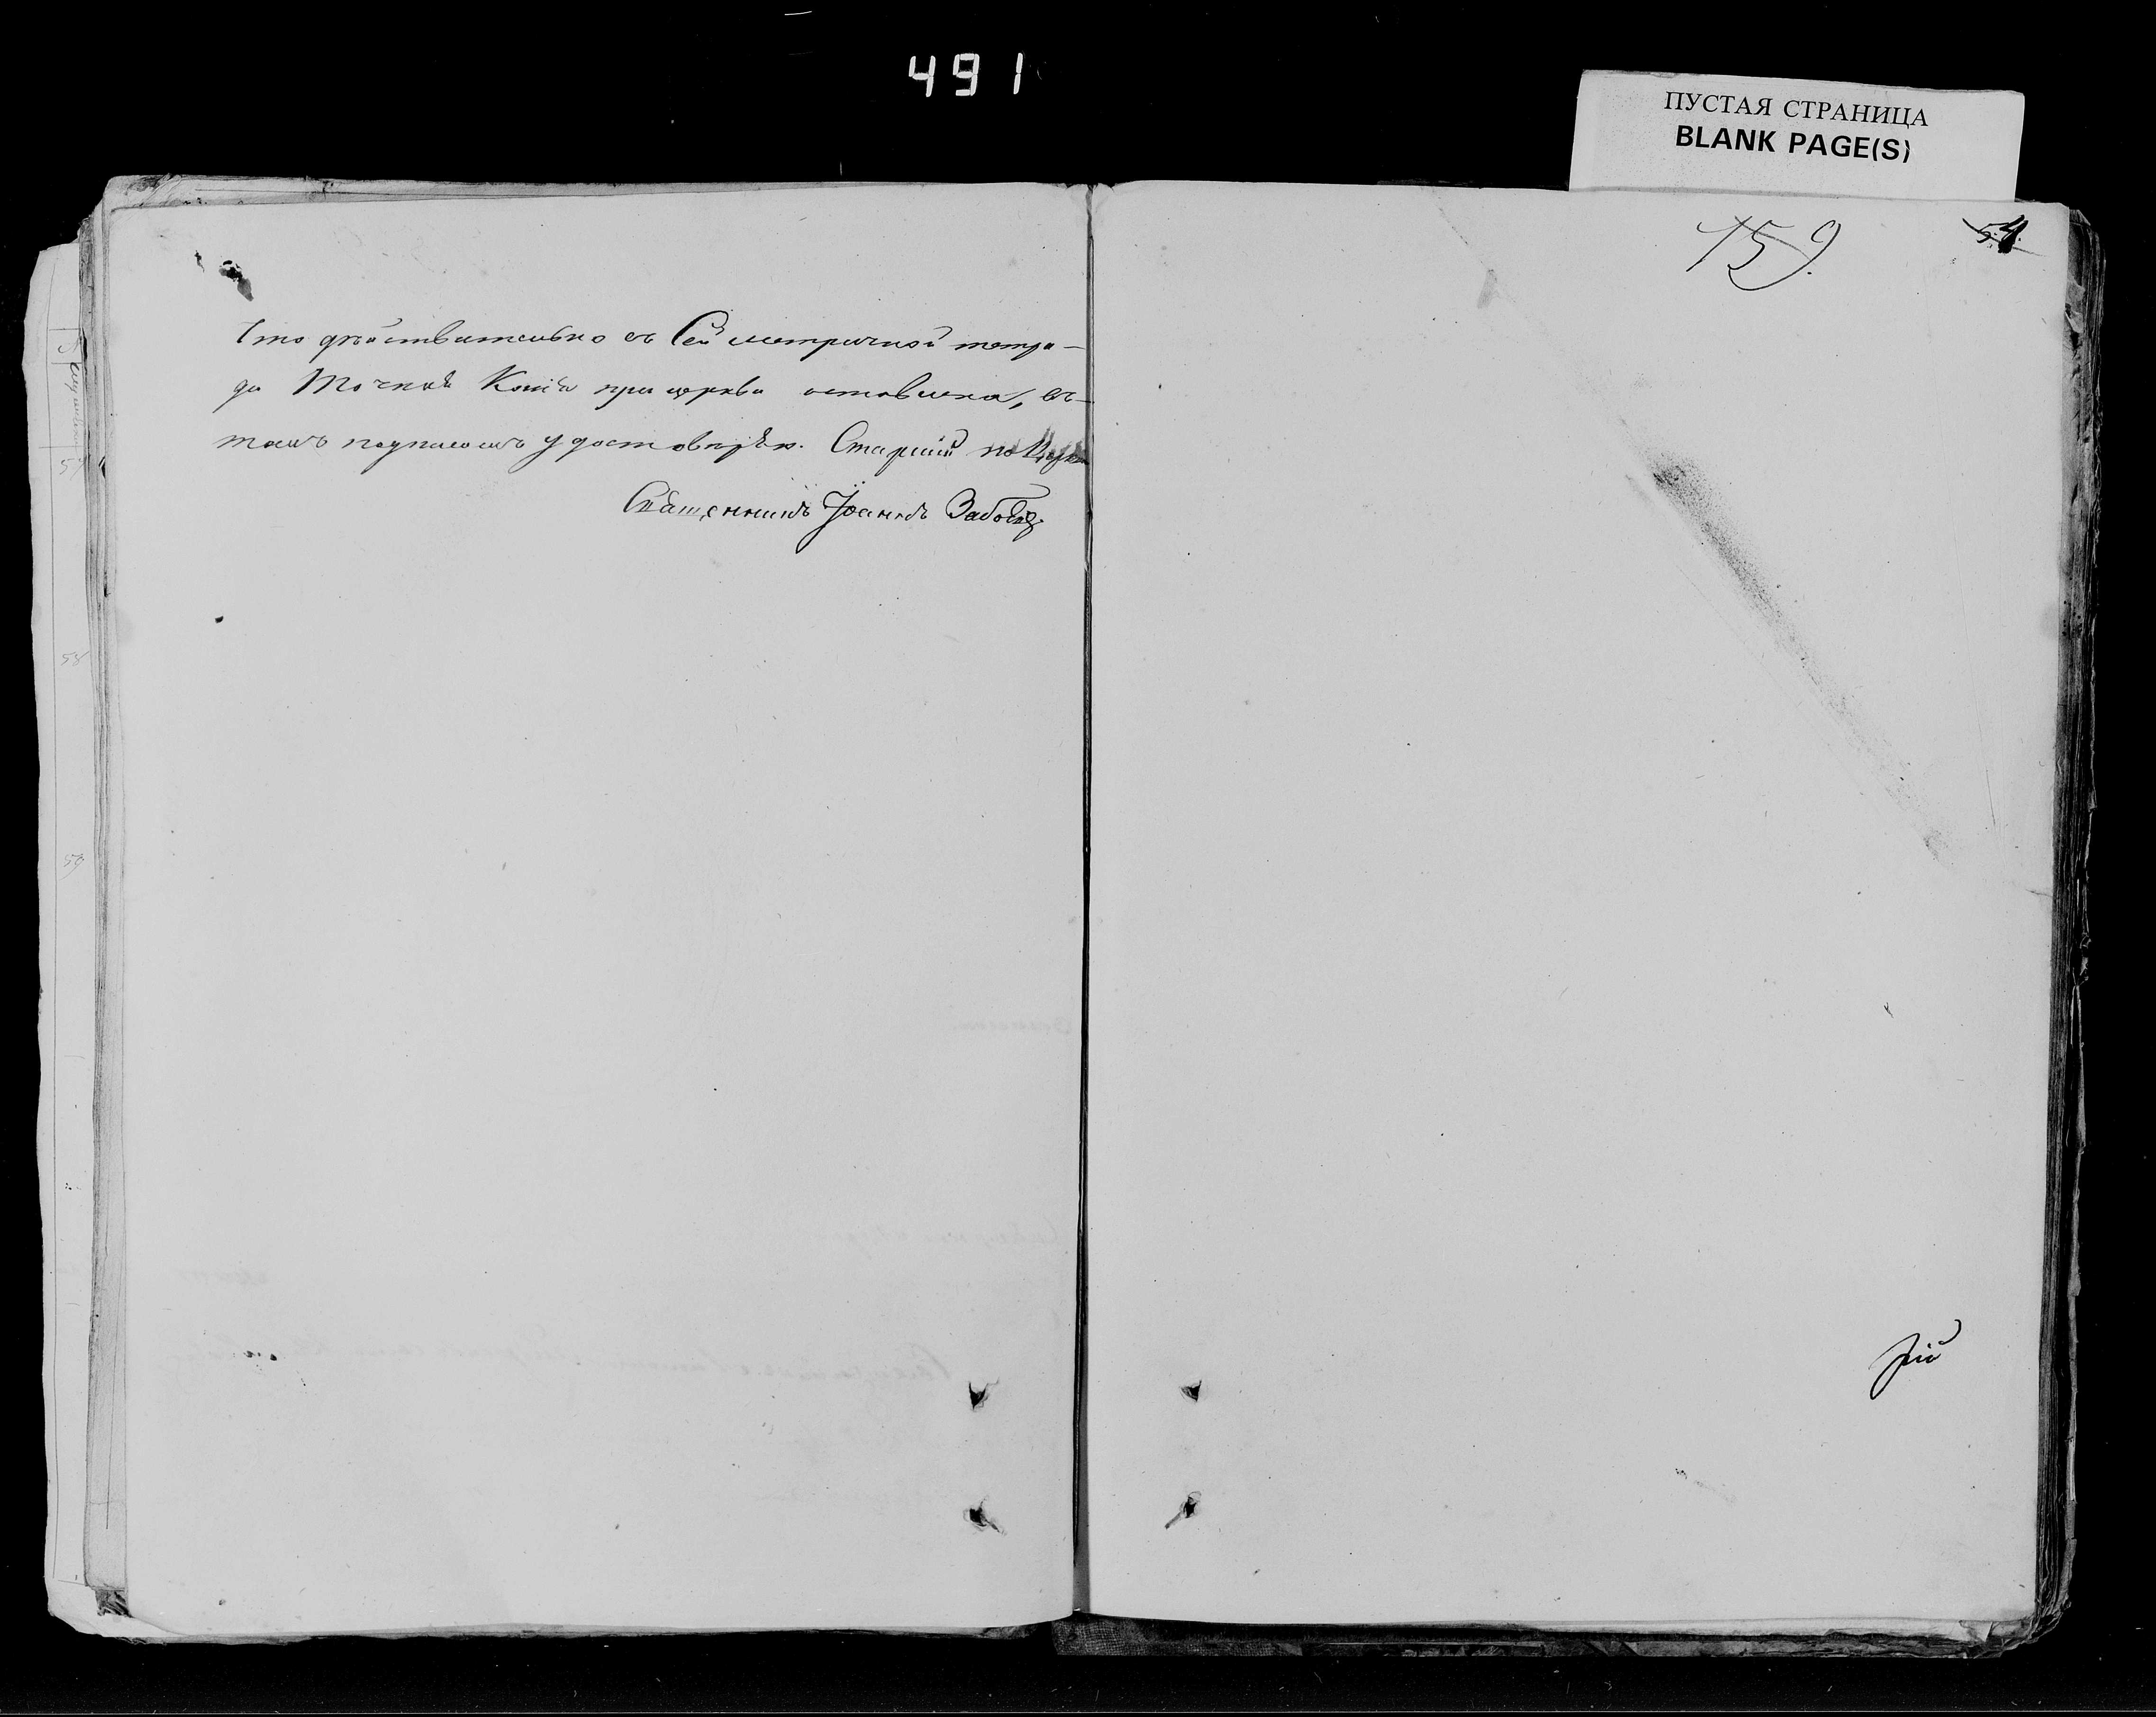 491
ПУСТАЯ СТРАНИЦА
BLANK PAGE(S)
159.
54.
Что дѣйствительно съ Сей метричной тетра-
ди Точная Копія при церкви оставлена, въ
томъ подписомъ удостовѣряю. Старшій по
Священникъ Іоаннъ
рій
57
58
59